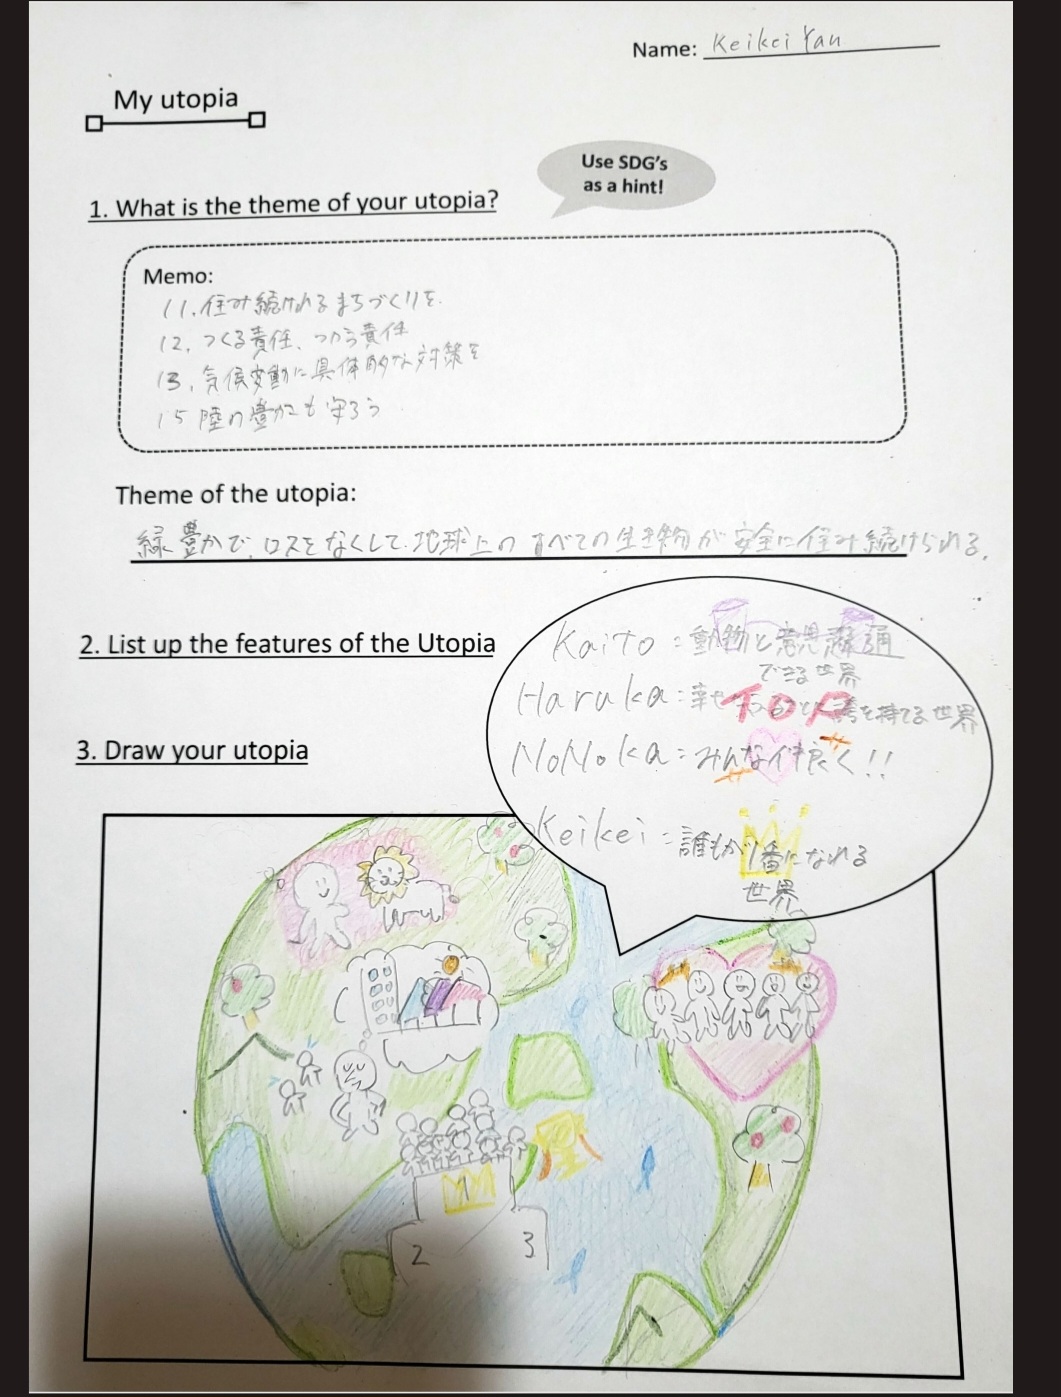 Name: Keikei Yan
My utopia
Use SDG's
as a hint!
1. What is the theme of your utopia?
Memo:
11.住み続けれるまちづくりを.
12. つくる責任、つかう責任
13. 気候変動に具体的な対策を
15 陸の豊かさも守ろう
Theme of the utopia:
緑豊かで、ロスをなくして、地球上のすべての生き物が安全に住み続けられる。
2. List up the features of the Utopia
Kaito:動物と意思疎通
できる世界
Haruka:幸せ を持てる世界
NoNoka:みんな仲良く!!
Keikei:誰もが1番になれる
世界
3. Draw your utopia
1
2
3